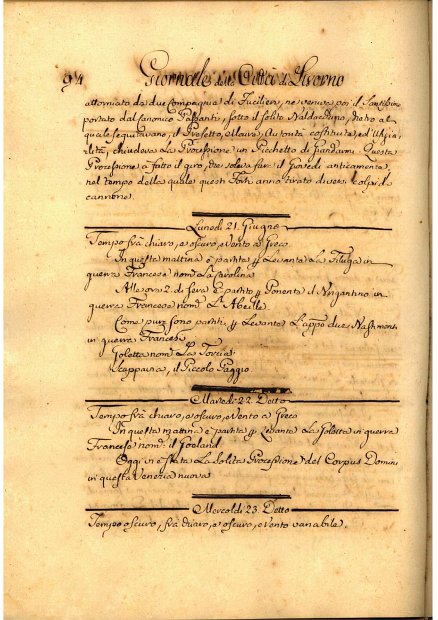 94 Giornale della Città di Livorno
attorniato da due Compagnia di Fucilieri, ne veniva poi il Santissimo
portato dal Canonico Passanti, sotto il solito Baldacchino, dietro al
quale seguitavano, il Prefetto, e l'altre Autorità costituite, ed Uffizia-
lità, chiudeva la Processione un Picchetto di Giandarmi. Questa
Processione à fatto il giro, che soleva fare il Giovedì anticamente,
nel tempo della quale questi Forti anno tirato diversi colpi di
cannone.
Lunedì 21. Giugno
Tempo frà chiaro, e oscuro, e vento a Greco
In questa mattina è partita p Levante La Filuga in
guerra Francese nom. La Carolina
Alle ora 2. di sera è partito p Ponente il Brigantino in
guerra Francese nom. L'Abeille
Come pure sono partiti p Levante L'app. due Bastimenti
in guerra Francesi
Goletta nom. La Torcia
Scappavia, il Piccolo Paggio
Martedì 22. Detto
Tempo frà chiaro, e oscuro, e vento a Greco
In questa mattina è partita p Levante La Goletta in guerra
Francese nom. il Goeland
Oggi vi è stata La solita Processione del Corpus Domini
in questa Venezia nuova
Mercoldì 23. Detto
Tempo oscuro, frà chiaro, e oscuro, e vento variabile.